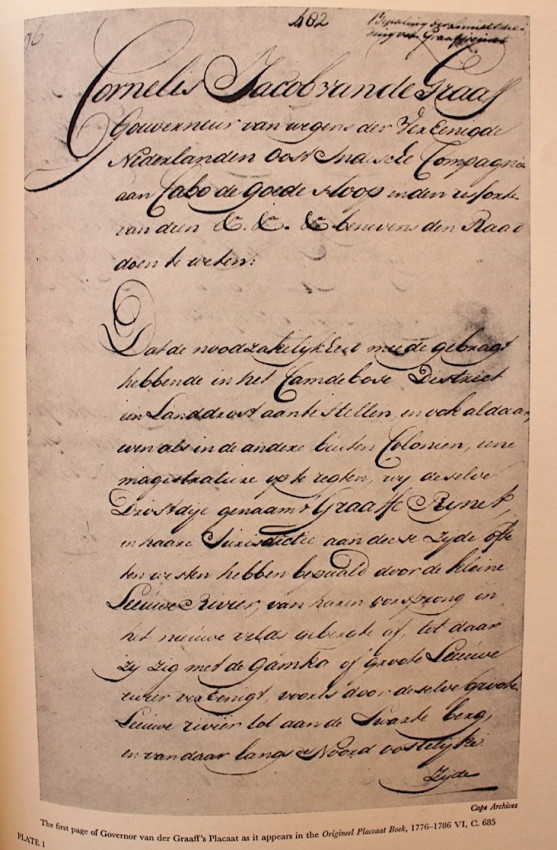 402
Bepaling der limietschei-
ding van Graaffrijnet
Cornelis Jacob van de Graaff
Gouverneur van wegens der Vereenigde
Nederlanden Oost Indische Compagnie
aan Cabo de Goede Hoop en den ressorte
van dien &c. &c. &c benevens den Raad
doen te weten:
Dat de noodzakelykheid meede gebragt
hebbende in het Camdebose District
een Landdrost aan te stellen, en ook aldaar
even als in de andere buiten Colonien, eene
magistrature op te regten, wy deselve
Drostdije genaamt Graaffe Rijnet
en haare Jurisdictie aan deese Zyde ofte
ten westen hebben bepaald door de kleine
Leeuwe Rivier, van haren oorsprong in
het nieuwe velds gebergte af, tot daar
zy zig met de Gamka of groote Leeuwe
rivier vereenigt, voorts door deselve groote
Leeuwe rivier tot aan de Swarte berg,
en van daar langs Noord oostelyke
Zyde
Cape Archives
The first page of Governor van der Graaff's Placaat as it appears in the Origineel Placcaat Boek, 1776–1786 VI, C. 685
PLATE 1